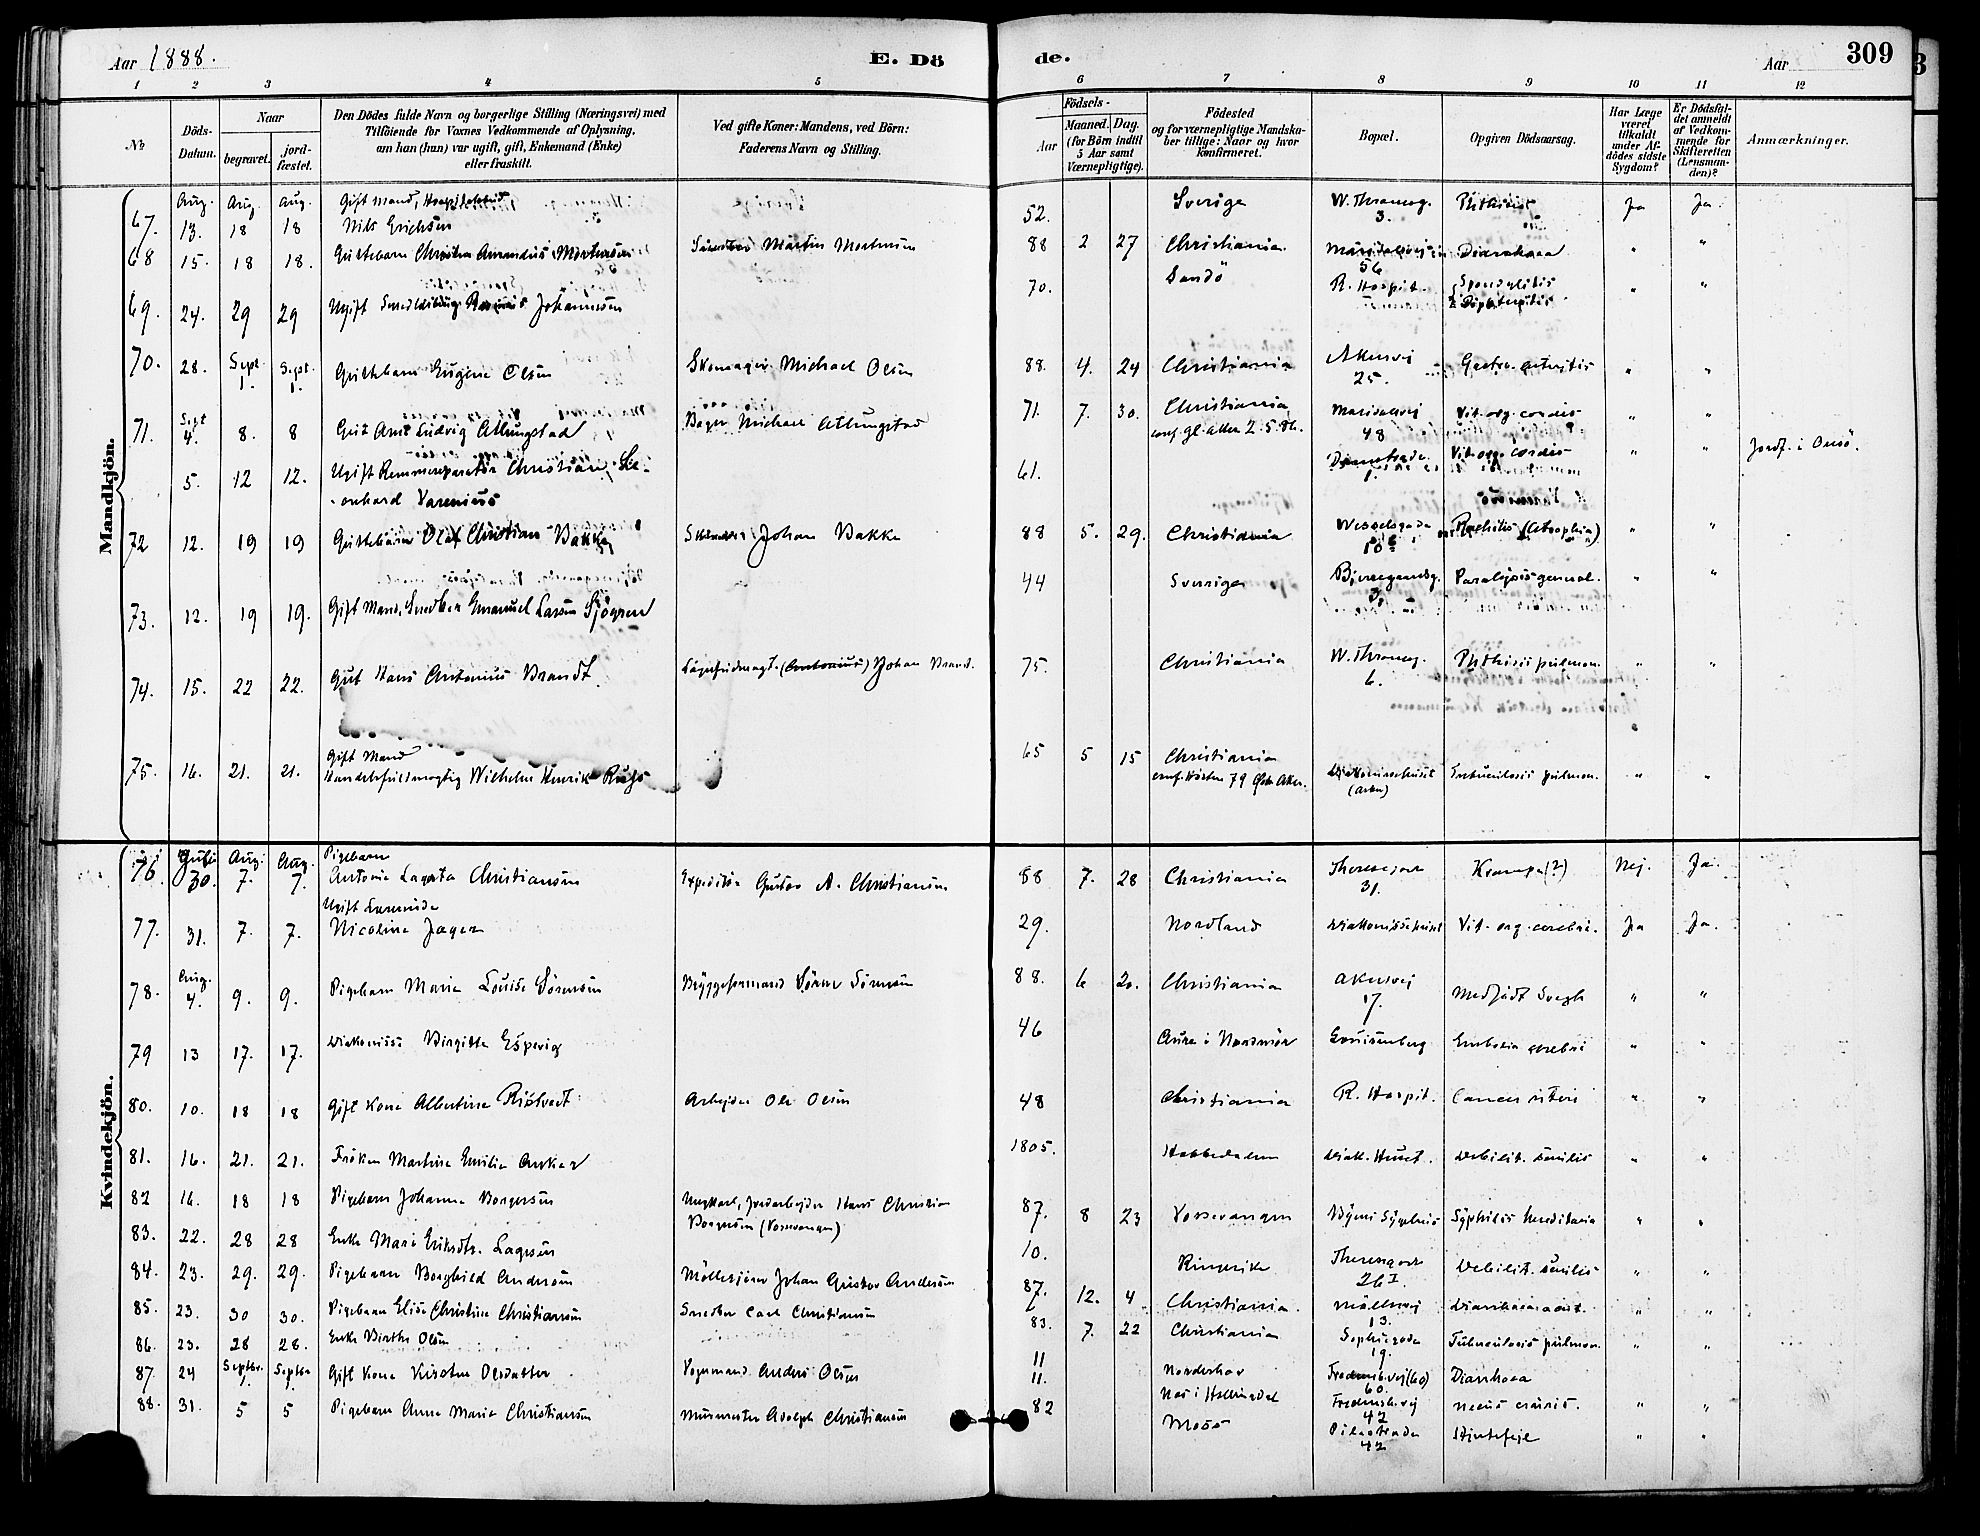 Aar 1888.
E. Dö
de.
Aar
309
1 2 3 4 5 6 7 8 9 10 11 12
No
Döds-Datum.
Naar
begravet.
jordfæstet.
Den Dödes fulde Navn og borgerlige Stilling (Næringsvei) med
Tilföiende for Voxnes Vedkommende af Oplysning,
om han (hun) var ugift, gift, Enkemand (Enke)
eller fraskilt.
Ved gifte Koner: Mandens, ved Börn:
Faderens Navn og Stilling.
Födsels-
Aar
Maaned. Dag.
(for Börn indtil
5 Aar samt
Værnepligtige).
Födested
og for værnepligtige Mandska-
ber tillige: Naar og hvor
konfirmeret.
Bopæl.
Opgiven Dödsaarsag.
Har Læge
været
tilkaldt
under Af-
dödes sidste
Sygdom?
Er Dödsfal-
det anmeldt
af Vedkom-
mende for
Skifteretten
(Lensman-
den)?
Anmærkninger.
Mandkjön.
Aug. Aug. Aug. Gift Mand,
67. 13. 18 18 Nils Erichsen 52. Sverige W. Thranesg. 3. Phthisis Ja Ja
68 15. 18 18. Guttebarn Christen Amandus Mortensen Martin Mortensen 88 2 27 Christiania Maridalsvei 56 Diarrhoea " "
69. 24. 29 29 Ugift Johannesen 70. Sandö R. Hospit. Spondylitis " "
70. 28. Sept. 1. Sept. 1. Guttebarn Eugene Olsen Skomager Michael Olsen 88. 4. 24 Christiania Akersvej 25. Gastro-enteritis " "
71. Sept 4. 8. 8 Gut Arnt Ludvig Attungstad Bager Michael Attungstad 71. 7. 30. Christiania conf. gl. Aker 2.5.86. Maridalsvej 48 Vit. org. cordis " "
5. 12 12. Ugift Christian Le-
onhard Varenius 61. 1. Vit. org. cordis " " Jordf. i Onsö.
72 12. 19 19 Guttebarn Olaf Christian Bakke Johan Bakke 88 5. 29. Christiania Wesselsgade 10 Rachitis (Atrophia) " "
73. 12. 19 19. Gift Mand, Snedker Emanuel Larsen Sjögren 44 Sverige Bjerregaardsg. 3. Paralysis general. " "
74. 15. 22 22. Gut Hans Antonius Brandt (Antonius) Johan Brand. 75. Christiania W. Thranesg. 6. Phthisis pulmon. " "
Gift Mand
75. 16. 21. 21. Handelsfuldmægtig Wilhelm Henrik Rughs 65 5 15 Christiania conf. Hösten 79 Östr. Aker. Diakonissehuset (Aker) Tuberculosis pulmon. " "
Kvindekjön.
Juli Aug. Aug. Pigebarn
76. 30. 7. 7. Antonie Lagerta Christiansen Expeditör Gustav A. Christiansen 88 7. 28 Christiania Theresegade 31. Krampe (?) Nej. Ja.
Ugift
77. 31. 7. 7. Nicoline Jager 29. Nordland Diakonissehuset Vit. org. cerebri. Ja Ja.
78. Aug. 4. 9. 9. Pigebarn Marie Louise Sörensen Bryggeformand Sören Sörensen 88. 6 20. Christiania Akersvej 17. Medfödt Svagh. " "
79 13 17. 17. Diakonisse Birgitte Espevig 46 Aure i Nordmör Lovisenberg Embolia cerebri " "
80. 10. 18 18 Gift Kone Albertine Ristvedt Arbejder Ole Olsen 48 Christiania R. Hospit. Cancer uteri " "
81. 16. 21. 21. Fröken Martine Emilie Anker 1805. Diak. Huset. Debilit. senilis " "
82 16. 18 18 Pigebarn Johanne Borgersen Ungkarl, Jordarbejder Hans Christian
Borgersen (Vossevangen) 87. 8 23 Vossevangen Syphilis hereditaria " "
83. 22. 28 28 Enke Mari Eriksdtr. Lagesen 10. Ringerike Theresegade 26 I. Debilit. senilis " "
84. 23. 29. 29. Pigebarn Borghild Andersen Möllesjöner Johan Gustav Andersen 87. 12. 4 Christiania. Möllervej 13. Diarrhoea acut. " "
85. 23. 30 30. Pigebarn Elise Christine Christiansen Snedker Carl Christiansen 83. 7. 22 Christiania Sophiegade 19. Tuberculosis pulmon. " "
86. 23. 28 28. Enke Birthe Olsen 11 Norderhov Fredensb.vej (60) 60. Diarrhoea " "
87. 24 Septbr. 1. Septbr 1. Gift Kone Kirsten Olsdatter Vognmand Anders Olsen 11. Næs i Hallingdal Fredensb.vej 42 " "
88. 31. 5 5 Pigebarn Anne Marie Christiansen Murmester Adolph Christiansen 82 Moss Pilestrædet 42 Hjertefejl " "